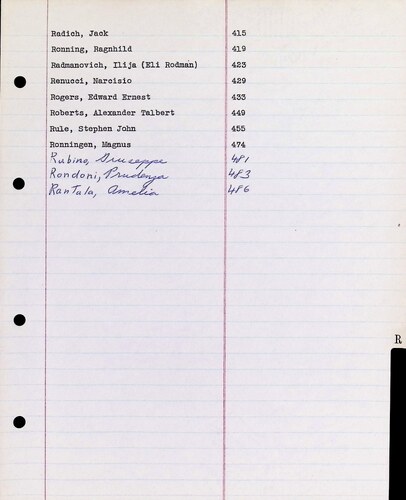 Radich, Jack 415
Ronning, Ragnhild 419
Radmanovich, Ilija (Eli Rodman) 423
Renucci, Narcisio 429
Rogers, Edward Ernest 433
Roberts, Alexander Talbert 449
Rule, Stephen John 455
Ronningen, Magnus 474
Rubino, Giuseppe 481
Rondoni, Prudenza 483
Rantala, Amelia 486
R